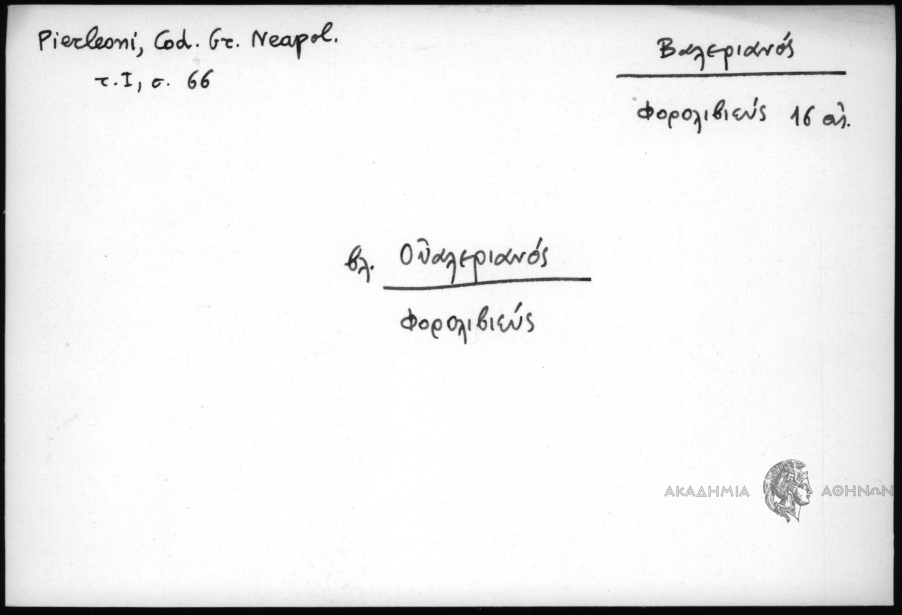 Pierleoni, Cod. Gr. Neapol.
τ. I, σ. 66
Βαλεριανός
Φορολιβιεύς 16 αἰ.
βλ. Οὐαλεριανός
Φορολιβιεύς
ΑΚΑΔΗΜΙΑ ΑΘΗΝΩΝ